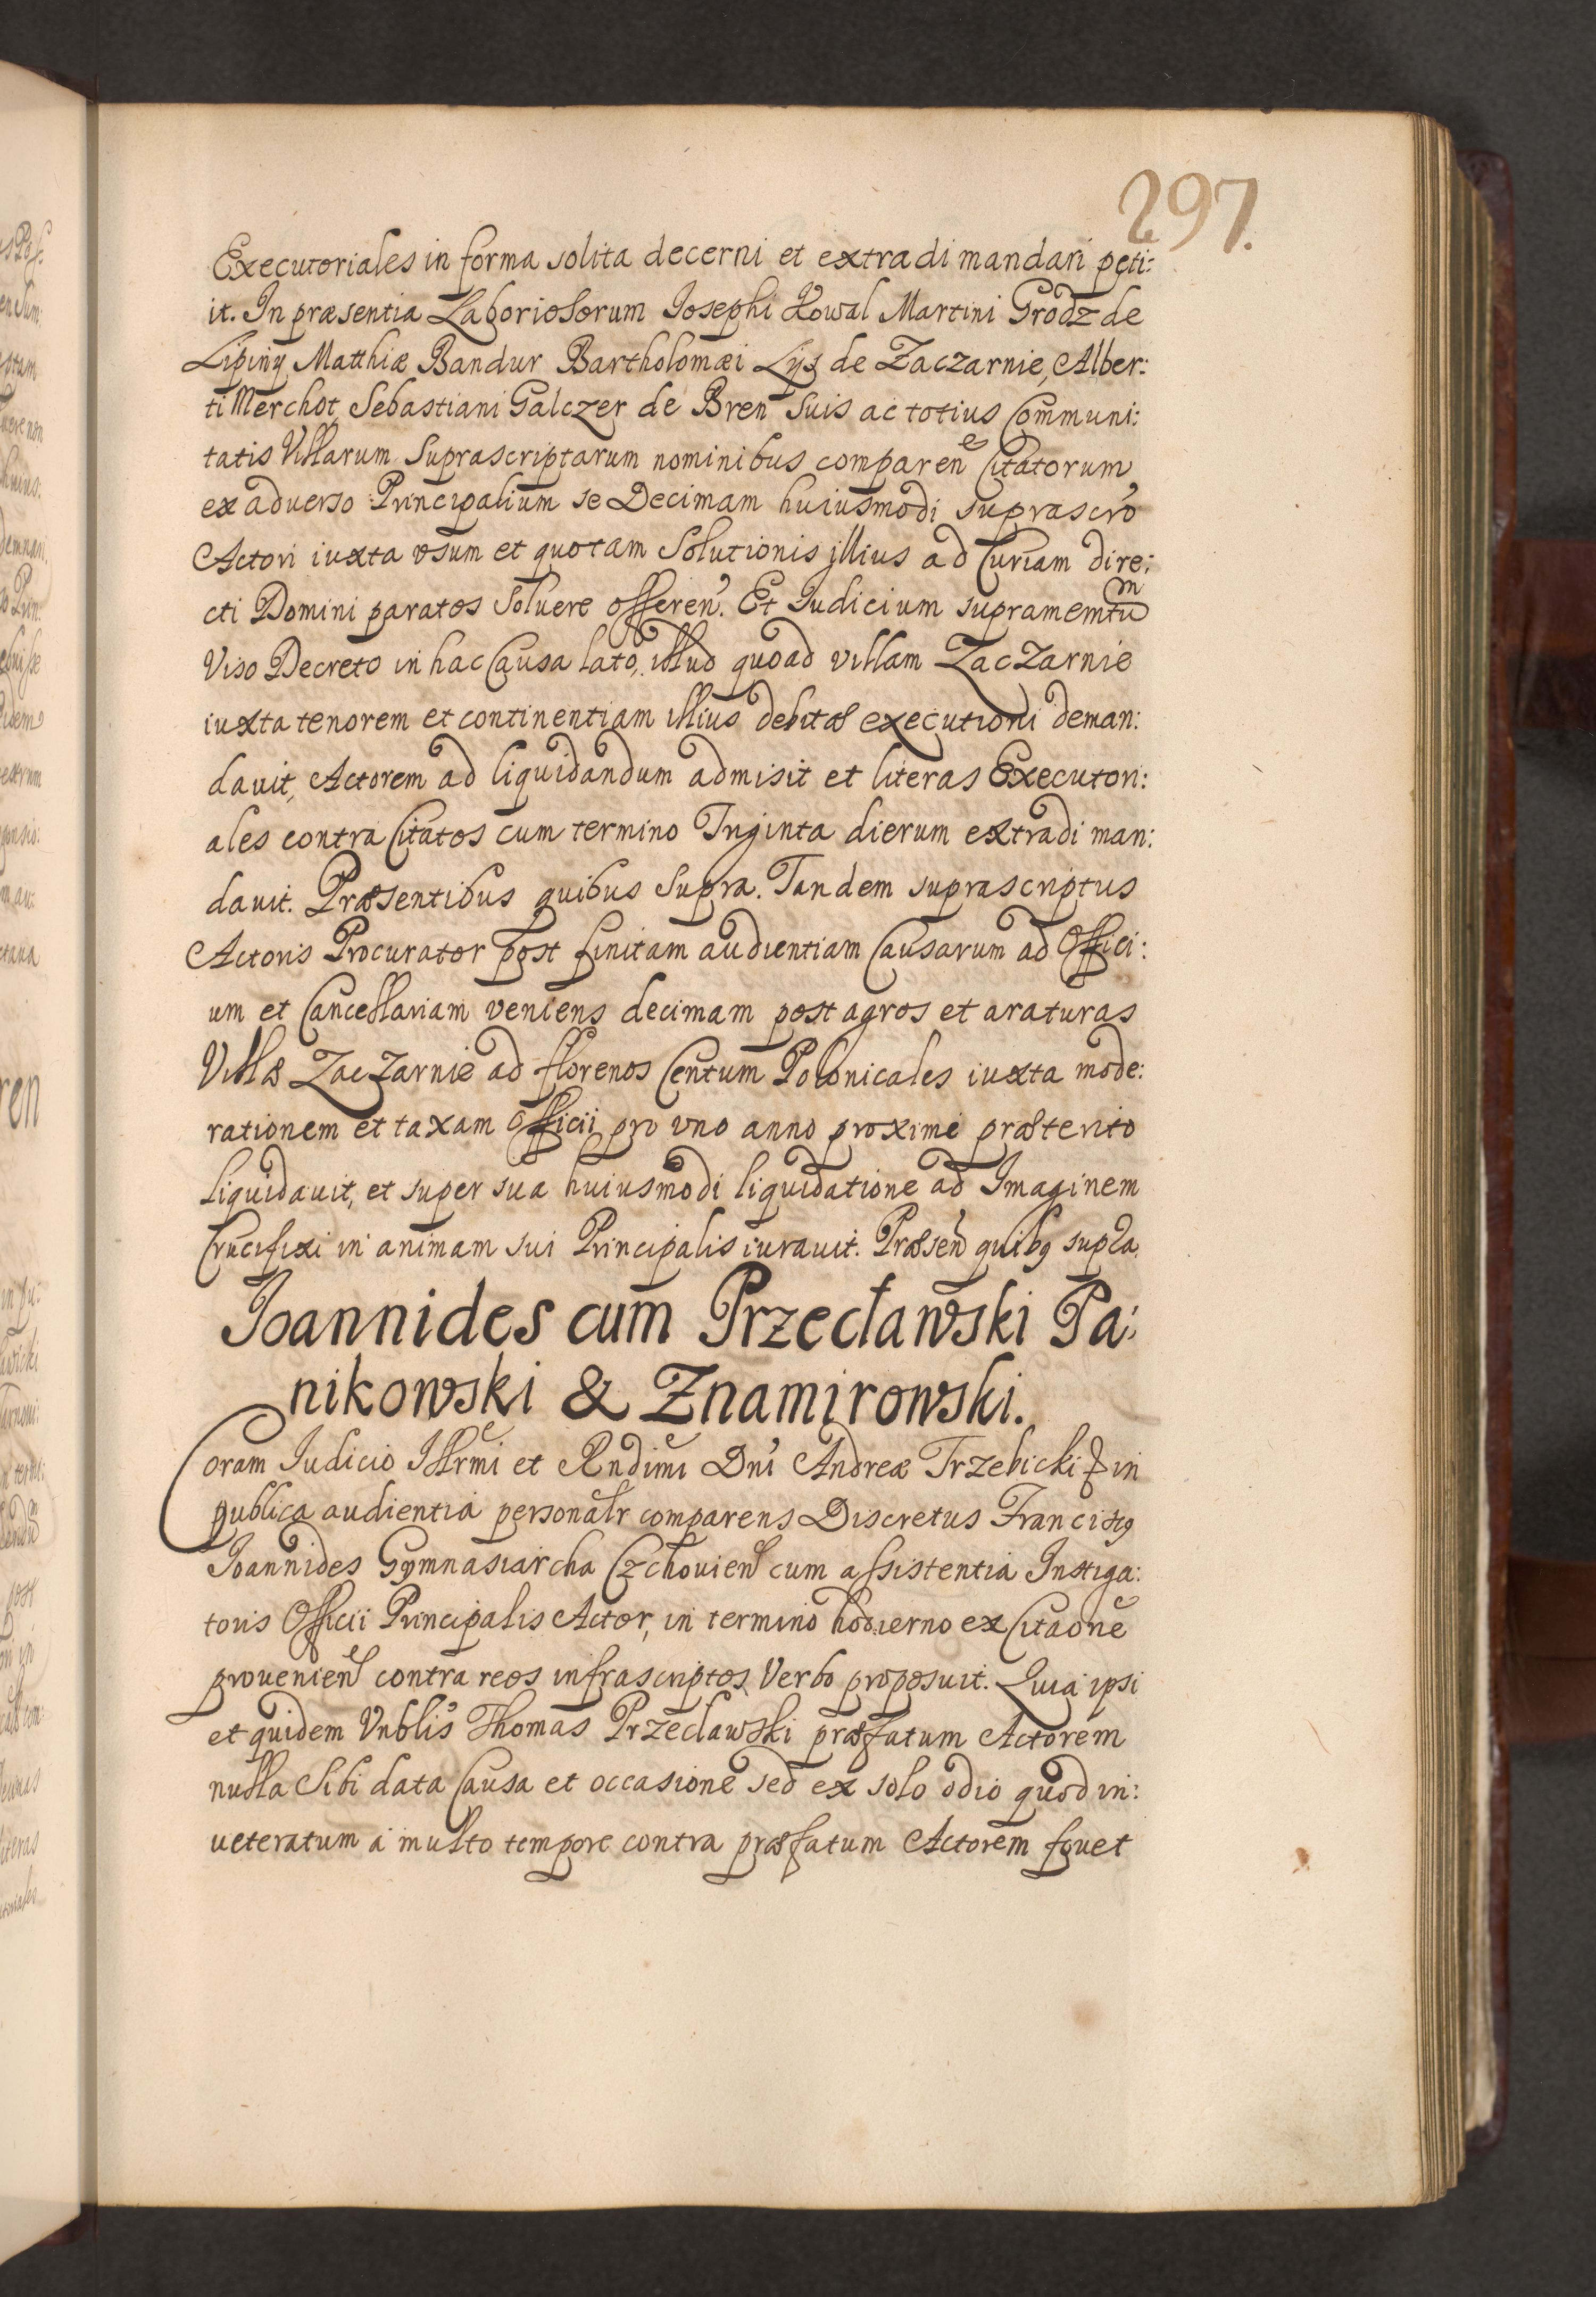 297.
Executoriales in forma solita decerni et extradi mandari peti:
it. In præsentia Laboriosorum Iosephi Kowal Martini Grodz de
Lipiny Matthiæ Bandur Bartholomæi Lys de Zaczarnie, Alber:
ti Merchot, Sebastiani Galczer de Bren suis ac totius Communi:
tatis Villarum suprascriptarum nominibus comparen̄ Citatorum
ex aduerso Principalium se Decimam huiusmodi suprascr̄o
Actori iuxta vsum et quotam solutionis illius ad Curiam dire:
cti Domini paratos soluere offeren̄. Et Iudicium supramemtūm
Viso Decreto in hac Causa lato, illud quoad villam Zaczarnie
iuxta tenorem et continentiam illius debitæ executioni deman:
dauit, Actorem ad liquidandum admisit et literas Executori:
ales contra Citatos cum termino Triginta dierum extradi man:
dauit. Præsentibus quibus supra. Tandem suprascriptus
Actoris Procurator post finitam audientiam Causarum ad Offici:
um et Cancellariam veniens decimam post agros et araturas
Villæ Zaczarnie ad florenos Centum Polonicales iuxta mode:
rationem et taxam Officii pro vno anno proxime præterito
liquidauit, et super sua huiusmodi liquidatione ad Imaginem
Crucifixi in animam sui Principalis iurauit. Præsen̄ quibq supra.
Ioannides cum Przecławski Pa:
nikowski & Znamirowski.
Coram Iudicio Illrm̄i et Rndīmi Dn̄i Andreæ Trzebicki & in
publica audientia personalr comparens Discretus Franciscq
Ioannides Gymnasiarcha Czchouien̄ cum assistentia Instiga:
toris Officii Principalis Actor, in termino hodierno ex Citaōne
prouenien̄ contra reos infrascriptos Verbo proposuit. Quia ipsi
et quidem Vnblis Thomas Przecławski præfatum Actorem
nulla sibi data Causa et occasione sed ex solo odio quod in:
ueteratum a multo tempore contra præfatum Actorem fouet